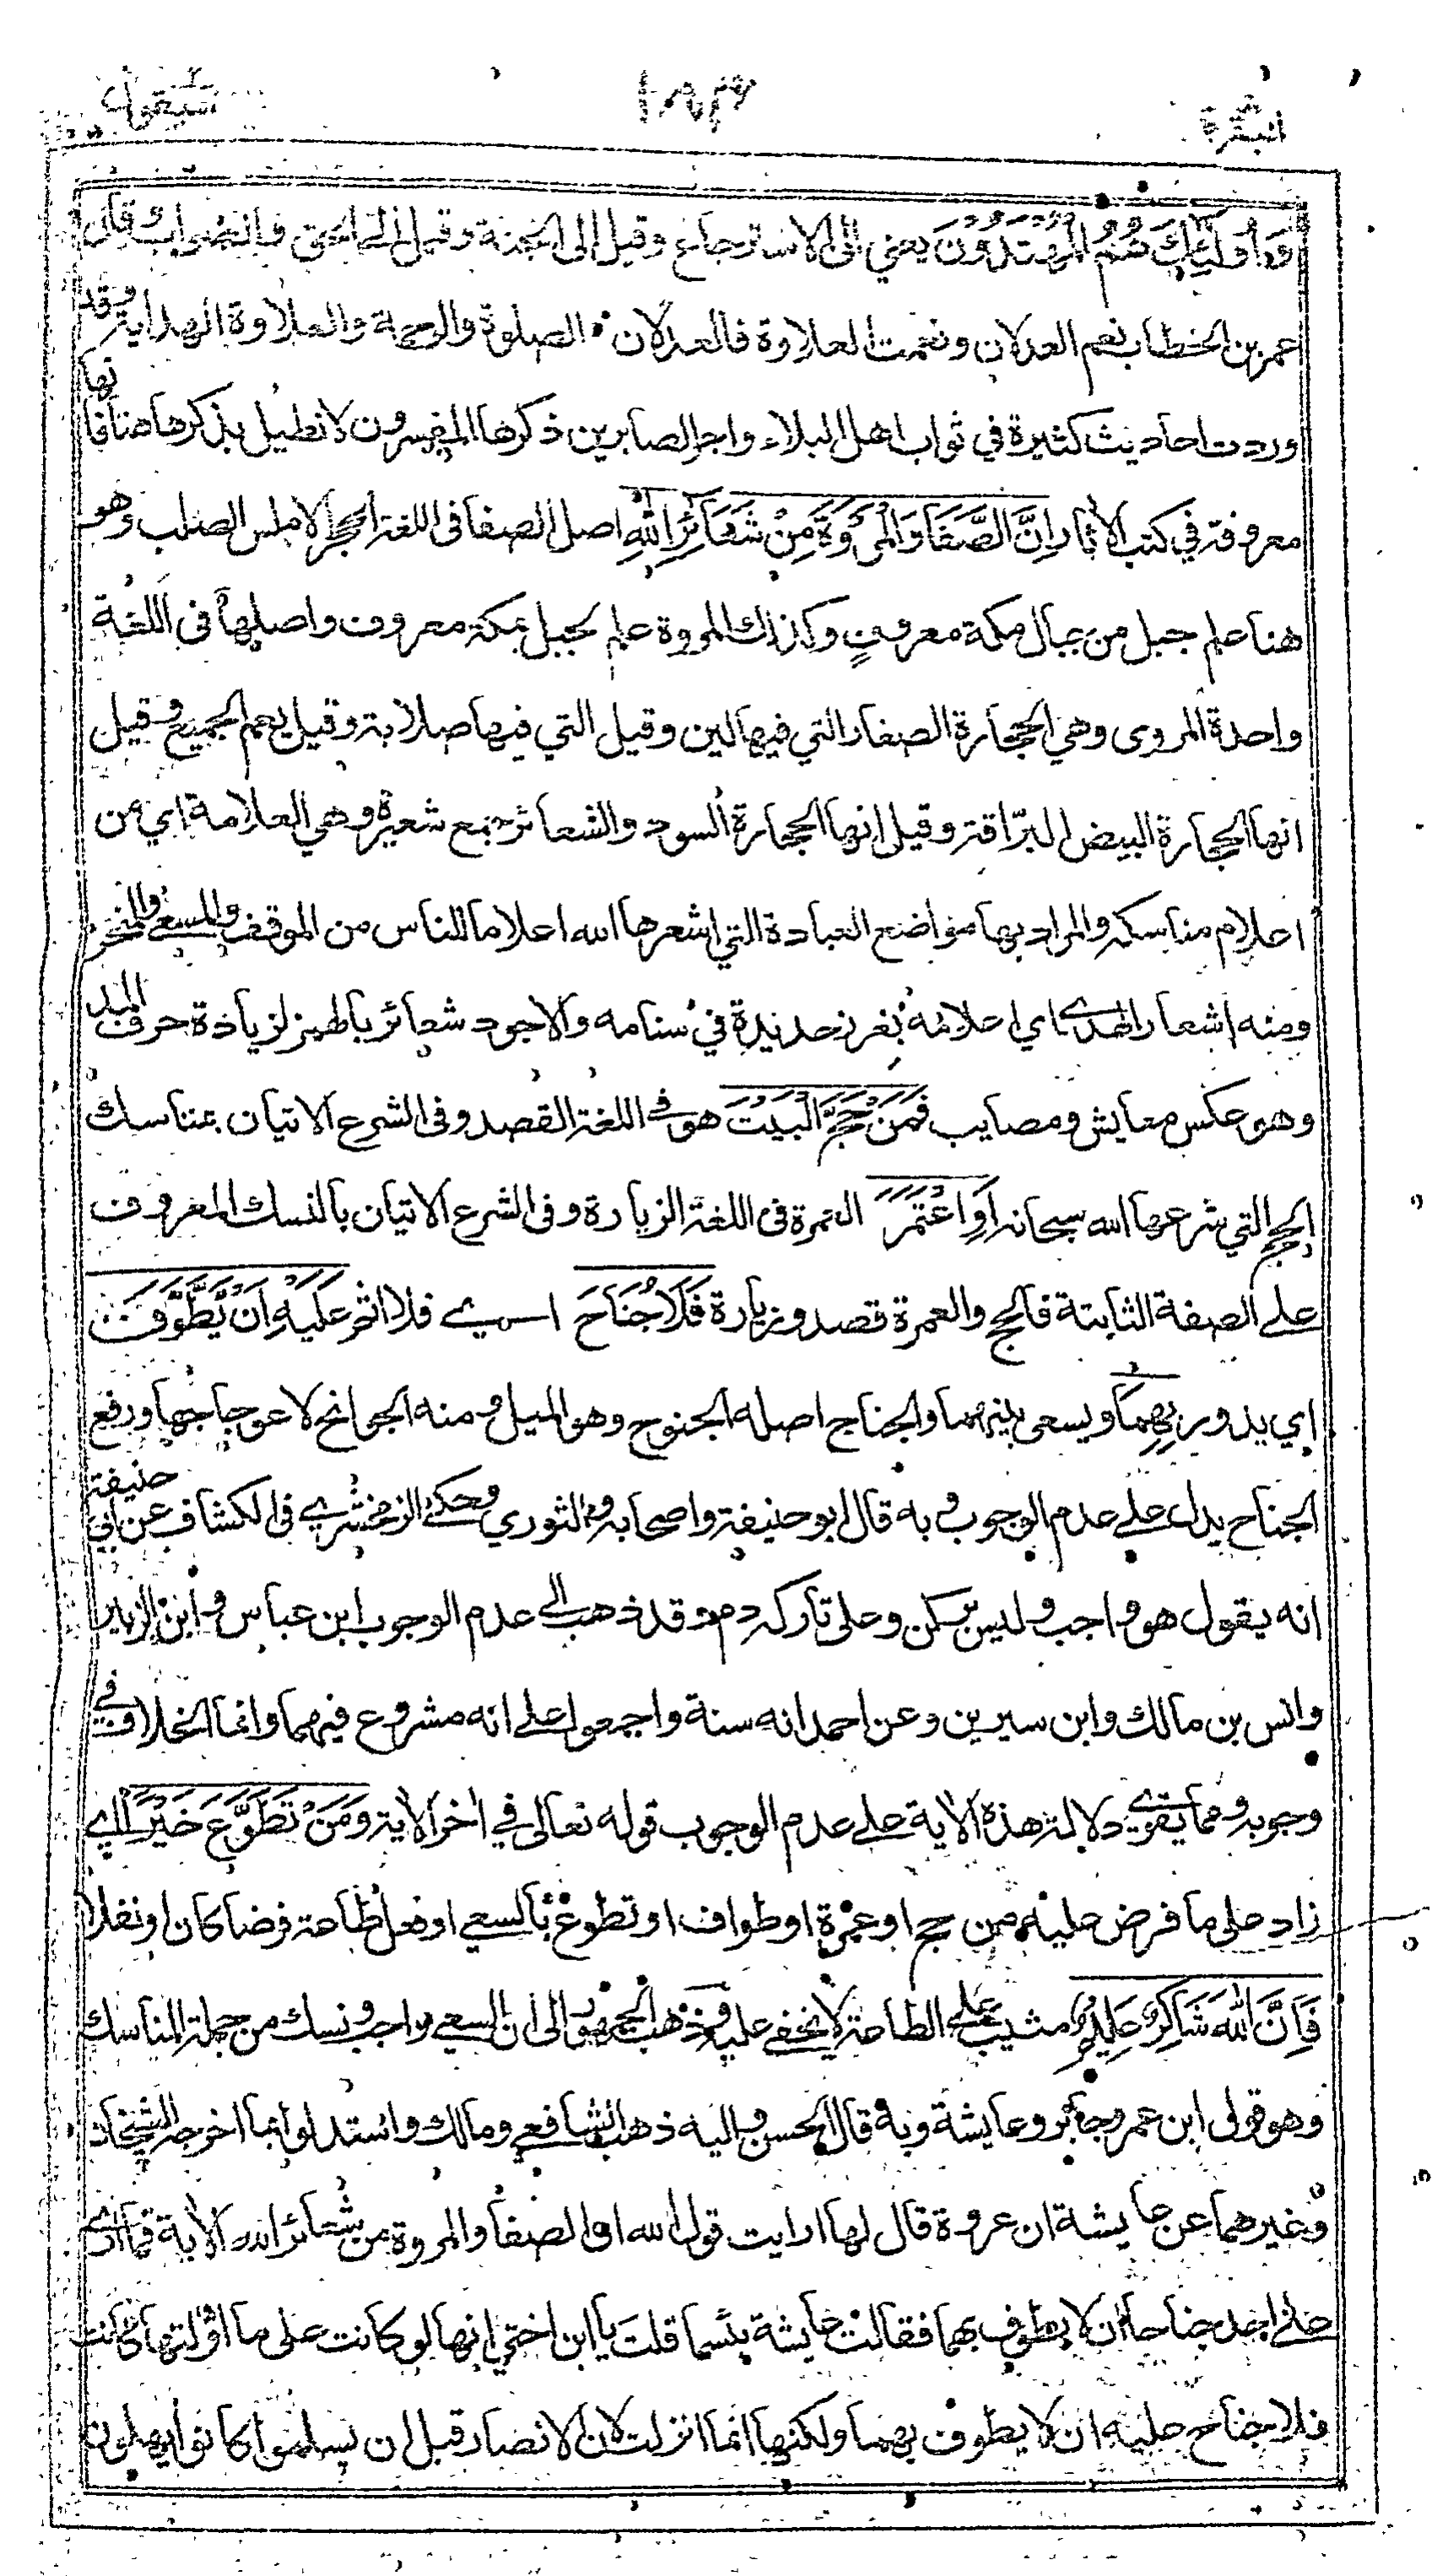 البقرة ١٨٣ سيقول
وَأُولَئِكَ هُمُ الْمُهْتَدُونَ يعني الى الاسترجاع وقيل الى الجنة وقيل الى الحق والصواب قال
عمر بن الخطاب نعم العدلان ونعمت العلاوة فالعدلان الصلوة والرحمة والعلاوة الهداية وقد
وردت احاديث كثيرة في ثواب اهل البلاء واجر الصابرين ذكرها المفسرون لا نطيل بذكرها هنا فانها
معروفة في كتب الآثار اِنَّ الصَّفَا وَالْمَرْوَةَ مِنْ شَعَائِرِ اللهِ اصل الصفا في اللغة الحجر الاملس الصلب وهو
هنا علم جبل من جبال مكة معروفٍ وكذلك المروة علم لجبل بمكة معروف واصلها في اللغة
واحدة المروى وهي الحجارة الصغار التي فيها لين وقيل التي فيها صلابة وقيل يعم الجميع وقيل
انها الحجارة البيض البرّاقة وقيل انها الحجارة السود والشعائر جمع شعيرة وهي العلامة اي من
اعلام مناسكه والمراد بها مواضع العبادة التي اشعرها الله اعلاما للناس من الموقف والمسعى والمنحر
ومنه اشعار الهدي اي اعلامه بغرز حديدة في سنامه والاجود شعائر بالهمز لزيادة حرف المد
وهو عكس معايش ومصايب فَمَنْ حَجَّ الْبَيْتَ هو في اللغة القصد وفى الشرع الاتيان بمناسك
الحج التي شرعها الله سبحانه اَوِ اعْتَمَرَ العمرة فى اللغة الزيارة وفى الشرع الاتيان بالنسك المعروف
على الصفة الثابتة فالحج والعمرة قصد وزيارة فَلَا جُنَاحَ اي فلا اثم عَلَيْهِ اَنْ يَّطَّوَّفَ
اي يدور بِهِمَا ويسعى بينهما والجناح اصله الجنوح وهو الميل ومنه الجوانح لاعوجاجها ورفع
الجناح يدل على عدم الوجوب وبه قال ابو حنيفة واصحابه والثوري وحكى الزمخشري فى الكشاف عن ابي حنيفة
انه يقول هو واجب وليس بركن وعلى تاركه دم وقد ذهب الى عدم الوجوب ابن عباس وابن الزبير
وانس بن مالك وابن سيرين وعن احمد انه سنة واجمعوا على انه مشروع فيهما وانما الخلاف في
وجوبه ومما يقوي دلالة هذه الآية على عدم الوجوب قوله تعالى في اخر الآية وَمَنْ تَطَوَّعَ خَيْرًا اي
زاد على ما فرض عليه من حج او عمرة او طواف او تطوع بالسعي او فعل طاعة فرضا كان او نفلا
فَاِنَّ اللهَ شَاكِرٌ عَلِيْمٌ مثيب على الطاعة لا يخفى عليه وذهب الجمهور الى ان السعي واجب ونسك من جملة المناسك
وهو قول ابن عمر وجابر وعايشة وبه قال الحسن واليه ذهب الشافعي ومالك واستدلوا بما اخرجه الشيخان
وغيرهما عن عايشة ان عروة قال لها ارايت قول الله ان الصفا والمروة من شعائر الله الآية فما ارى
على احد جناحا ان لا يطوف بهما فقالت عايشة بئسما قلت يا ابن اختي انها لو كانت على ما اولتها كانت
فلا جناح عليه ان لا يطوف بهما ولكنها انما انزلت لان الانصار قبل ان يسلموا كانوا يهلون